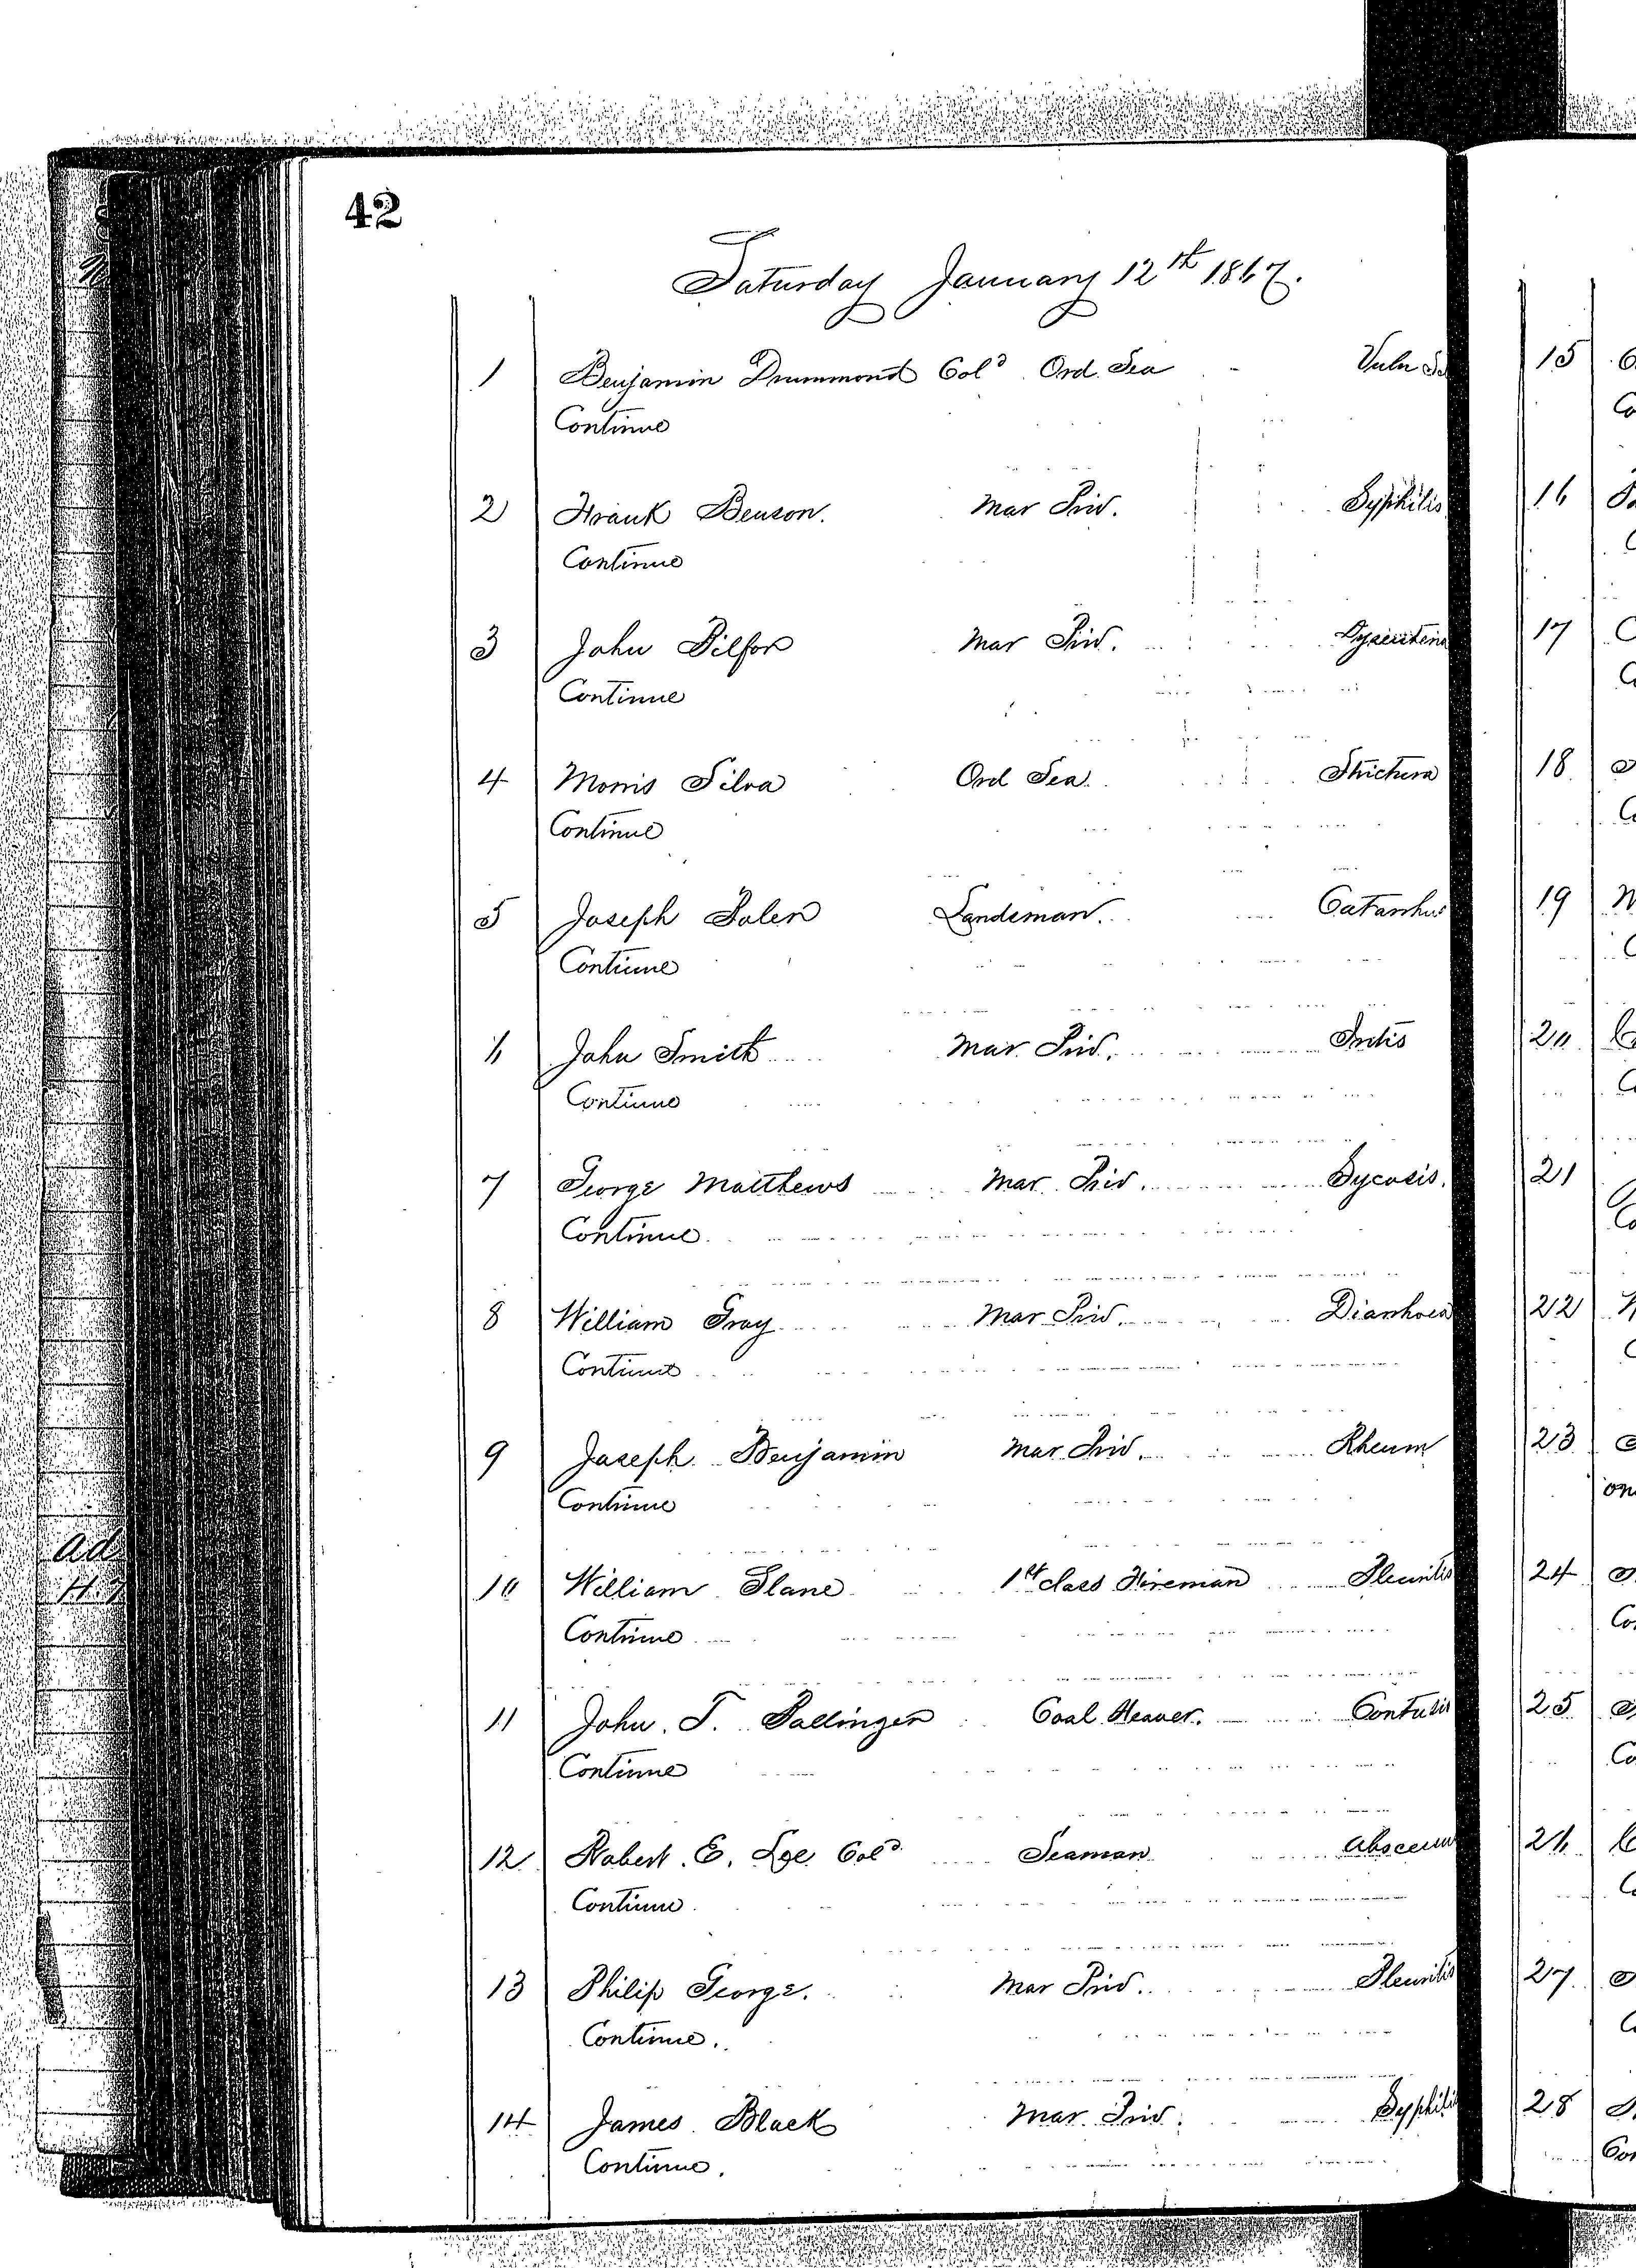 42
Saturday January 12th 1867.
1 Benjamin Drummond Cold Ord. Sea Vuln
Continue
2 Frank Benson. Mar Priv. Syphilis
Continue
3 John Pilfor Mar Priv.
Continue
4 Morris Silva Ord Sea. Strictura
Continue
5 Joseph Landsman. Catarrhus
Continue
6 John Smith Mar. Priv.
Continue
7 George Matthews Mar. Priv. Sycosis.
Continue
8 William Gray Mar Priv. Diarrhoea
Continue
9 Joseph Benjamin Mar. Priv. Rheum
Continue
10 William Slane 1st class Fireman Pleuritis
Continue
11 John. T. Ballinger Coal Heaver. Contusio
Continue
12 Robert. E. Lee Cold Seaman
Continue
13 Philip George. Mar Priv. Pleuritis
Continue.
14 James Black Mar. Priv. Syphilis
Continue.
15
16
17
18
19
20
21
22
23
24
25
26
27
28
ad